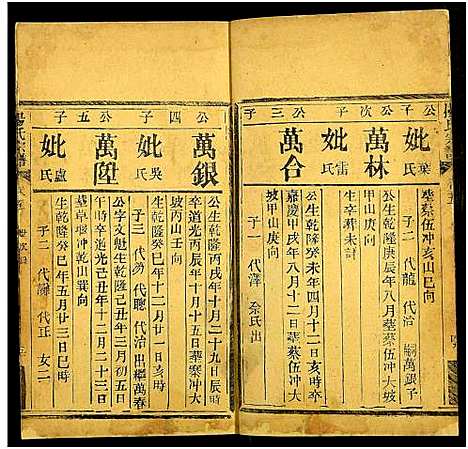 公子
妣
葉氏
葬蔡伍冲亥山巳向
子二 代龍 代治 嗣萬銀子
公次子
萬林
公生乾隆庚辰年八月葬蔡伍冲大坡
甲山庚向
妣
雷氏
生卒葬未詳
公三子
萬合
公生乾隆癸未年四月十一亥時卒
嘉慶甲戌年八月十二日葬蔡伍冲大
坡甲山庚向
子一 代澤 佘氏出
公四子
萬銀
公生乾隆丙戌年十月二十九日辰時
卒道光丙辰年十月十五日葬寨冲大
坡丙山壬向
妣
吳氏
生乾隆癸巳年十二月廿一日亥時
子三 代芬 代聰 代治出繼萬春
公五子
萬陞
公字文魁生乾隆己丑年三月初五日
午時卒道光己丑年十二月二十三日
葬草塅冲乾山巽向
妣
盧氏
生乾隆癸巳年五月廿三日巳時
子二 代謙 代正 女二
楊氏宗譜